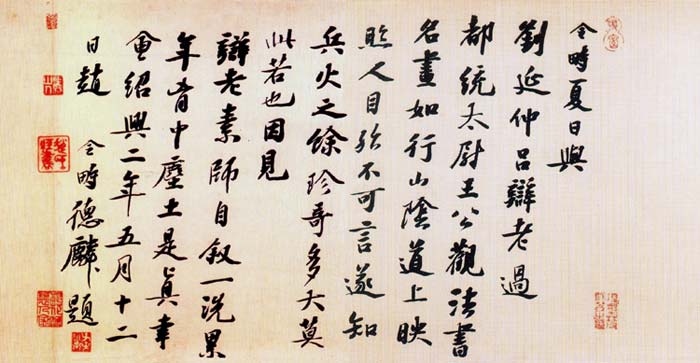 令畤夏日與
劉延仲呂辯老過
都統太尉王公觀法書
名畫如行山陰道上映
照人目殆不可言遂知
兵火之餘珍奇多大莫
此若也因見
辯老素師自叙一洗累
年胷中塵土是真幸
會紹興二年五月十二
日趙
令畤德麟題